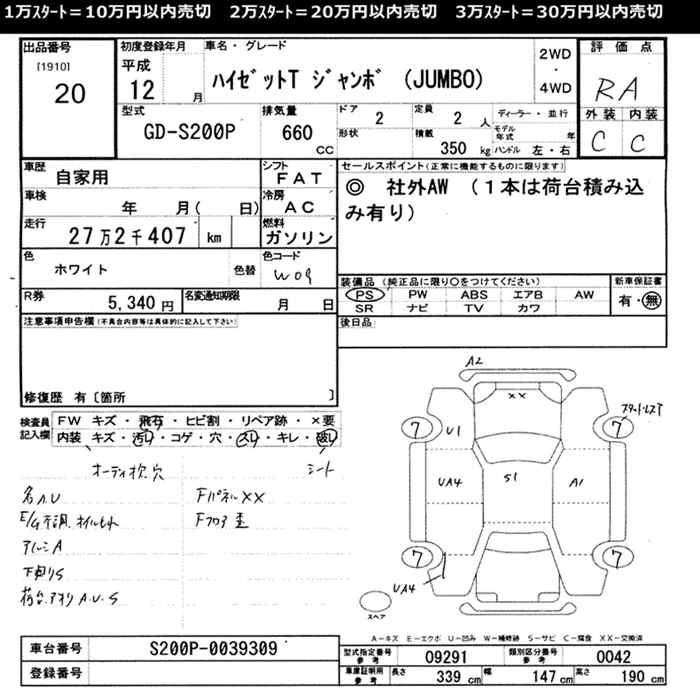 1万スタート＝10万円以内売切　2万スタート＝20万円以内売切　3万スタート＝30万円以内売切
出品番号
[1910]
20
初度登録年月
平成
12 月
車名 ・ グレード
ハイゼットT ジャンボ (JUMBO)
2WD
・
4WD
評 価 点
RA
外装 内装
C C
型式
GD-S200P
排気量
660 CC
ドア 2
定員 2 人
ディーラー ・ 並行
形状
積載 350 kg
モデル年式 年
ハンドル 左 ・ 右
車歴
自家用
シフト
FAT
車検
年 月( 日)
冷房
AC
走行
27万2千407 km
燃料
ガソリン
色
ホワイト 色替
色コード
W09
R券
5,340 円
名変通知期限
月 日
セールスポイント(正常に機能するものに限ります)
◎ 社外AW （１本は荷台積み込
み有り）
装備品 (純正品に限り○をつけてください)
PS PW ABS エアB AW
SR ナビ TV カワ
新車保証書
有・無
後日品
注意事項申告欄(不具合内容等は具体的に記入して下さい)
修復歴 有〔箇所 〕
検査員
記入欄
FW キズ ・ 飛石 ・ ヒビ割 ・ リペア跡 ・ ×要
内装 キズ ・ 汚れ ・ コゲ ・ 穴 ・ スレ ・ キレ ・ 破れ
オーディオ枕穴 シート
各A.U FパネルXX
E/G不調.オイルモレ Fフロア歪
アルミA
下廻りS
荷台.アオリA.U.S
A2
XX
スタートレスア
7 7
U1
UA4 S1 A1
7 7
UA4
スペア
A－キズ E－エクボ U－凹み W－補修跡 S－サビ C－腐食 XX－交換済
車台番号
S200P-0039309
登録番号
型式指定番号
参考
09291
類別区分番号
参考
0042
車庫証明用
参考
長さ 339 cm
幅 147 cm
高さ 190 cm